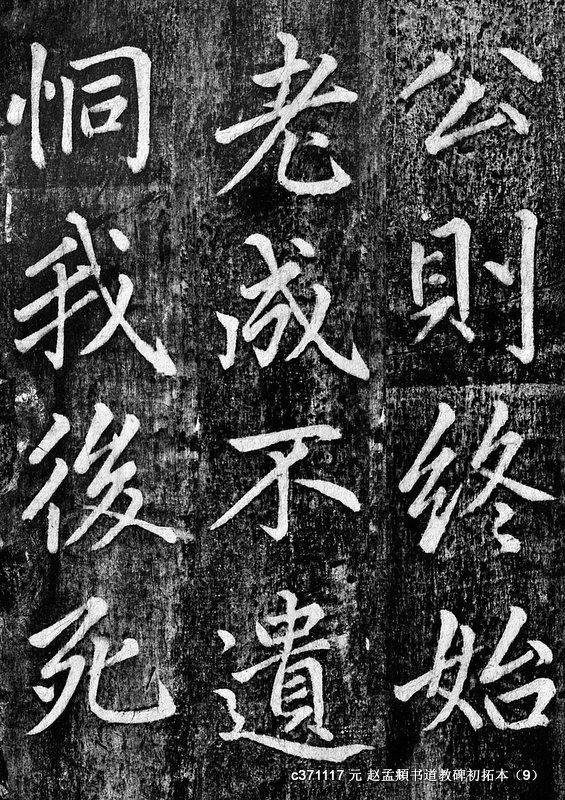 公則終始
老成不遺
恫我後死
c371117 元 赵孟頫书道教碑初拓本（9）